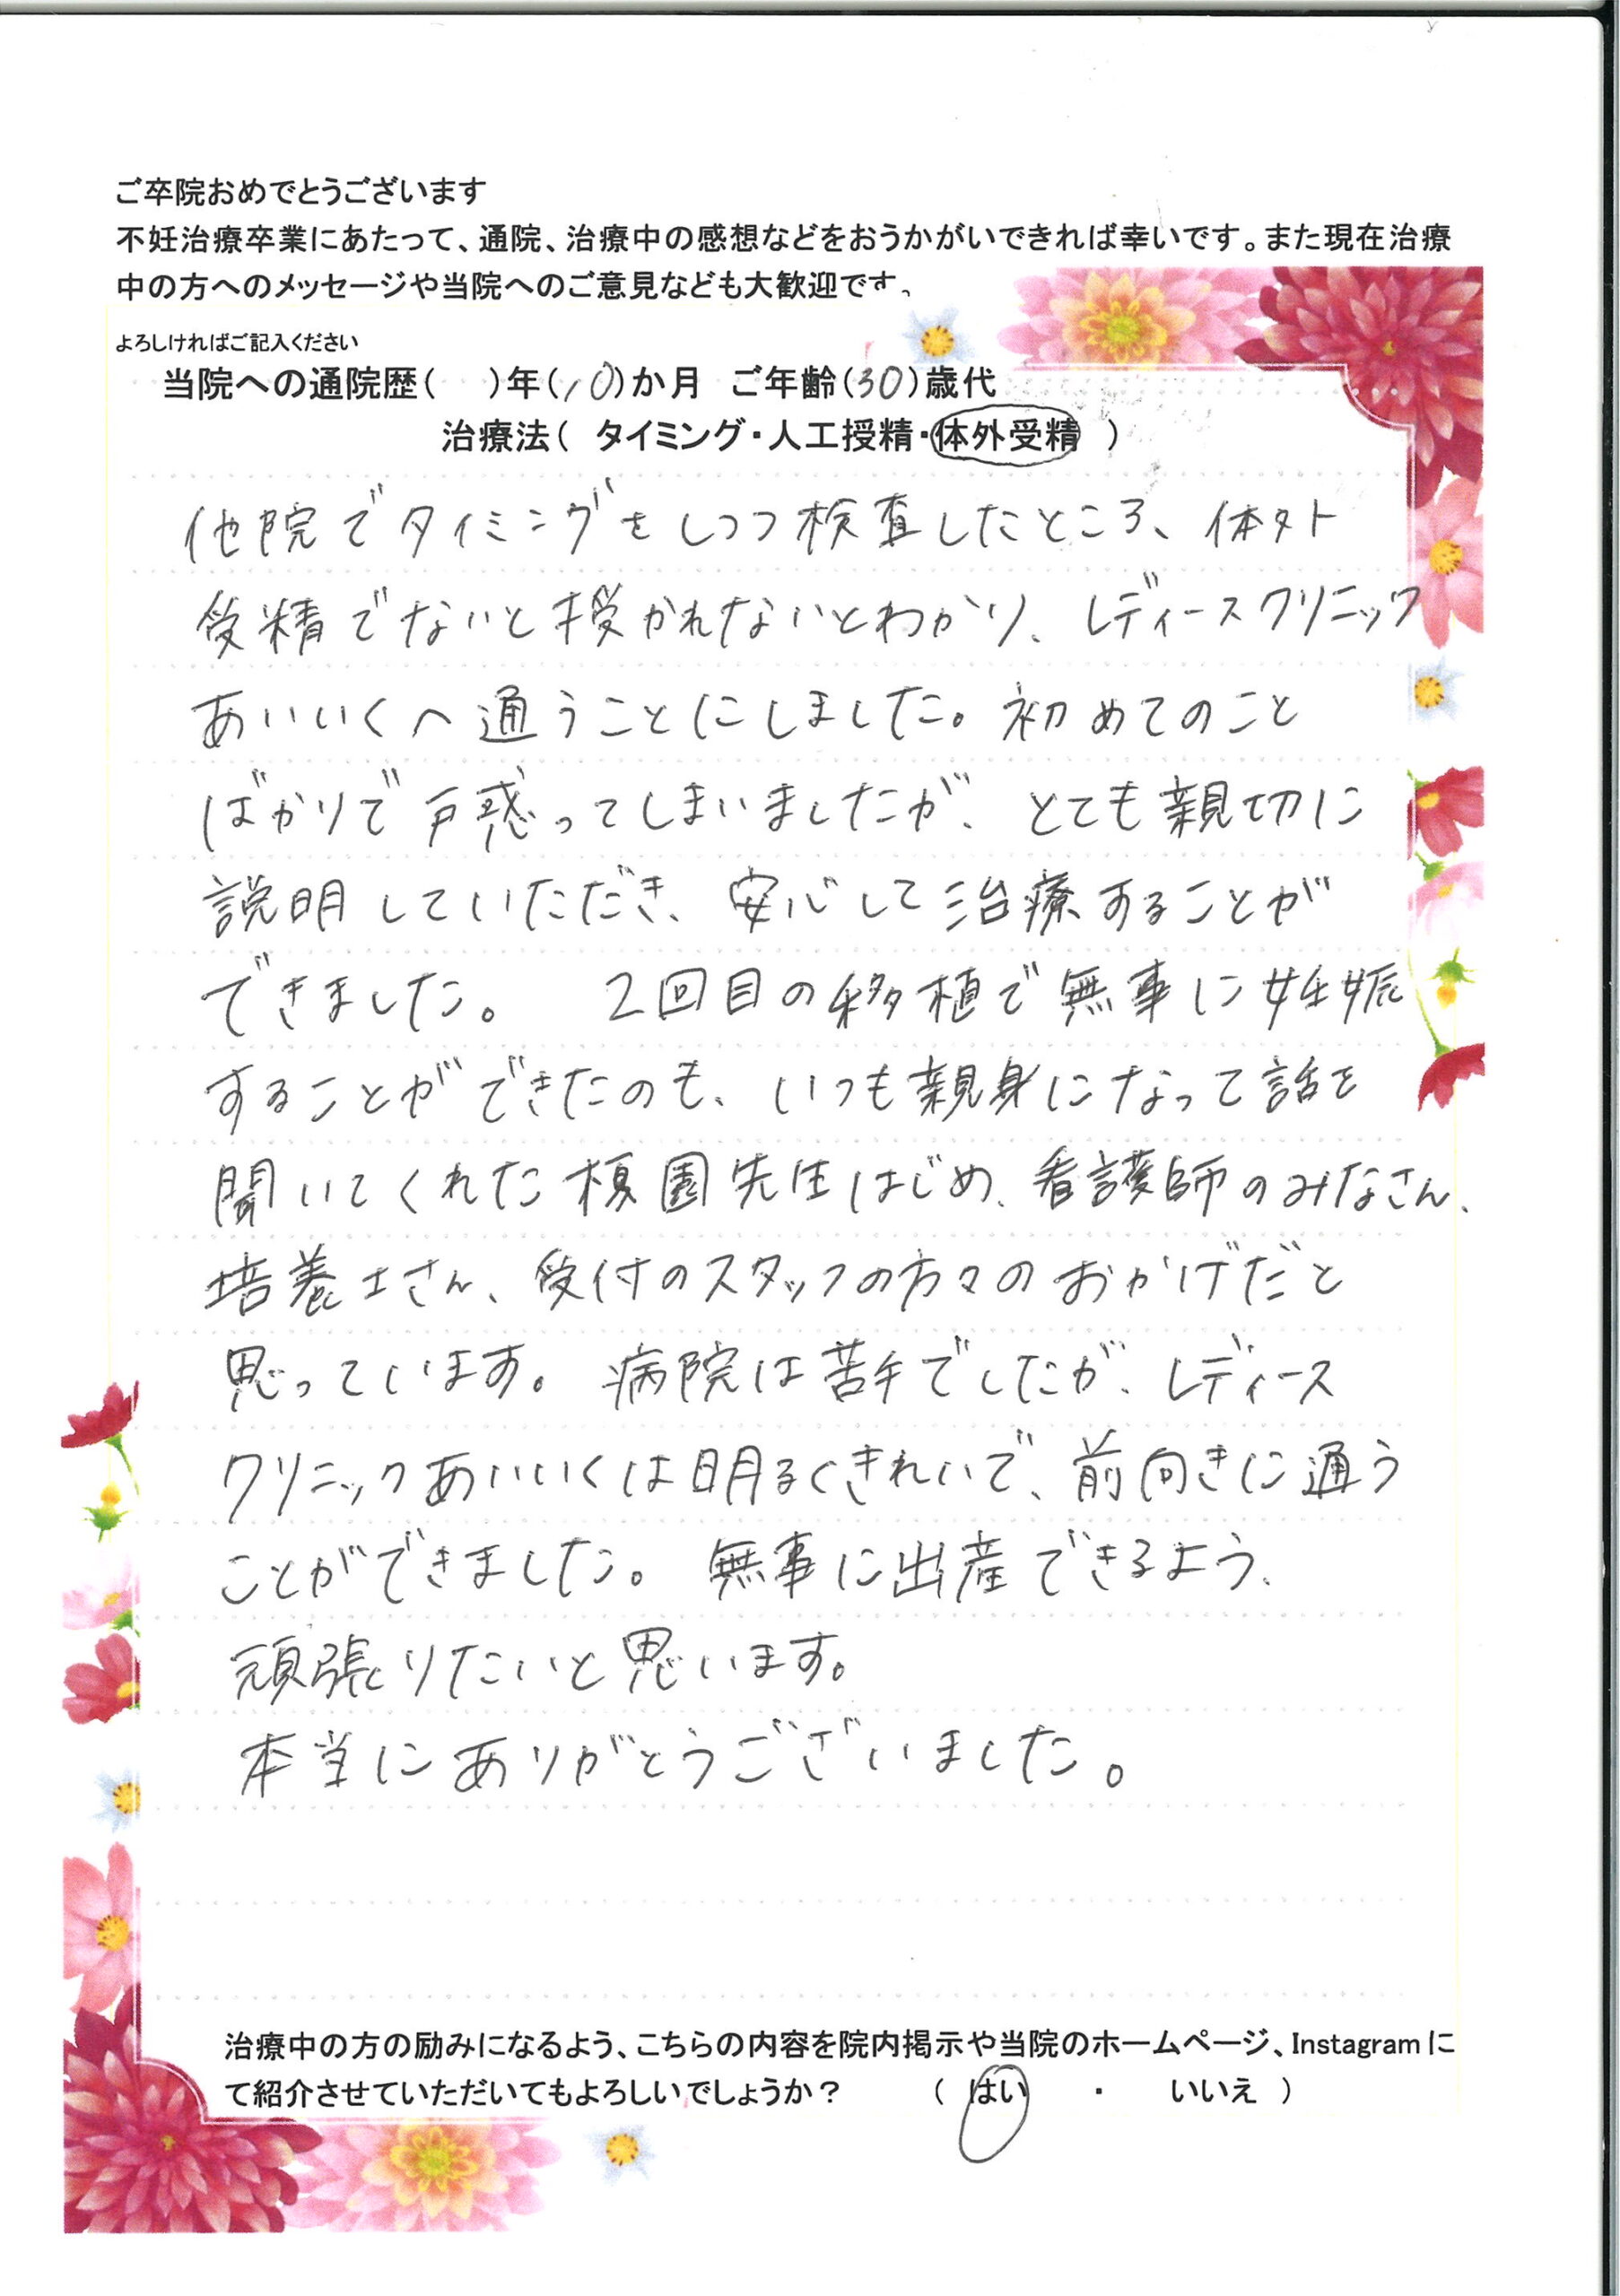 ご卒院おめでとうございます
不妊治療卒業にあたって、通院、治療中の感想などをおうかがいできれば幸いです。また現在治療
中の方へのメッセージや当院へのご意見なども大歓迎です。
よろしければご記入ください
当院への通院歴(　)年(10)か月　ご年齢(30)歳代
治療法(　タイミング・人工授精・体外受精　)
他院でタイミングをしつつ検査したところ、体外
受精でないと授かれないとわかり、レディースクリニック
あいいくへ通うことにしました。初めてのこと
ばかりで戸惑ってしまいましたが、とても親切に
説明していただき、安心して治療することが
できました。　2回目の移植で無事に妊娠
することができたのも、いつも親身になって話を
聞いてくれた榎園先生はじめ、看護師のみなさん、
培養士さん、受付のスタッフの方々のおかげだと
思っています。病院は苦手でしたが、レディース
クリニックあいいくは明るくきれいで、前向きに通う
ことができました。無事に出産できるよう、
頑張りたいと思います。
本当にありがとうございました。
治療中の方の励みになるよう、こちらの内容を院内掲示や当院のホームページ、Instagramに
て紹介させていただいてもよろしいでしょうか？　(　はい　・　いいえ　)